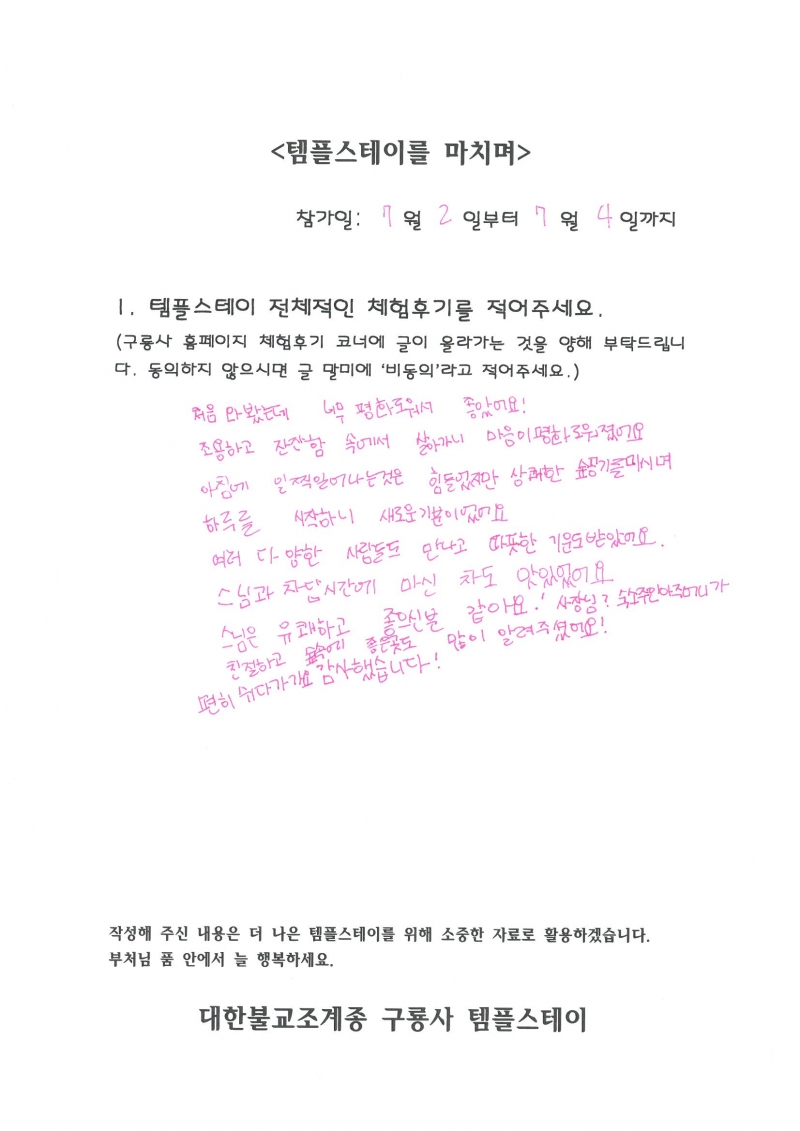 <템플스테이를 마치며>
참가일: 7 월 2 일부터 7 월 4 일까지
1. 템플스테이 전체적인 체험후기를 적어주세요.
(구룡사 홈페이지 체험후기 코너에 글이 올라가는 것을 양해 부탁드립니
다. 동의하지 않으시면 글 말미에 '비동의'라고 적어주세요.)
처음 와봤는데 너무 평화로워서 좋았어요!
조용하고 잔잔함 속에서 살아가니 마음이평화로워졌어요
아침에 일찍일어나는것은 힘들었지만 상쾌한 숲공기를마시며
하루를 시작하니 새로운기분이었어요
여러 다양한 사람들도 만나고 따뜻한 기운도받았어요.
스님과 차담시간에 마신 차도 맛있었어요
스님은 유쾌하고 좋으신분 같아요! 사장님? 숙소주인아주머니가
친절하고 숲속에 좋은곳도 많이 알려주셨어요!
편히 쉬다가가요 감사했습니다!
작성해 주신 내용은 더 나은 템플스테이를 위해 소중한 자료로 활용하겠습니다.
부처님 품 안에서 늘 행복하세요.
대한불교조계종 구룡사 템플스테이